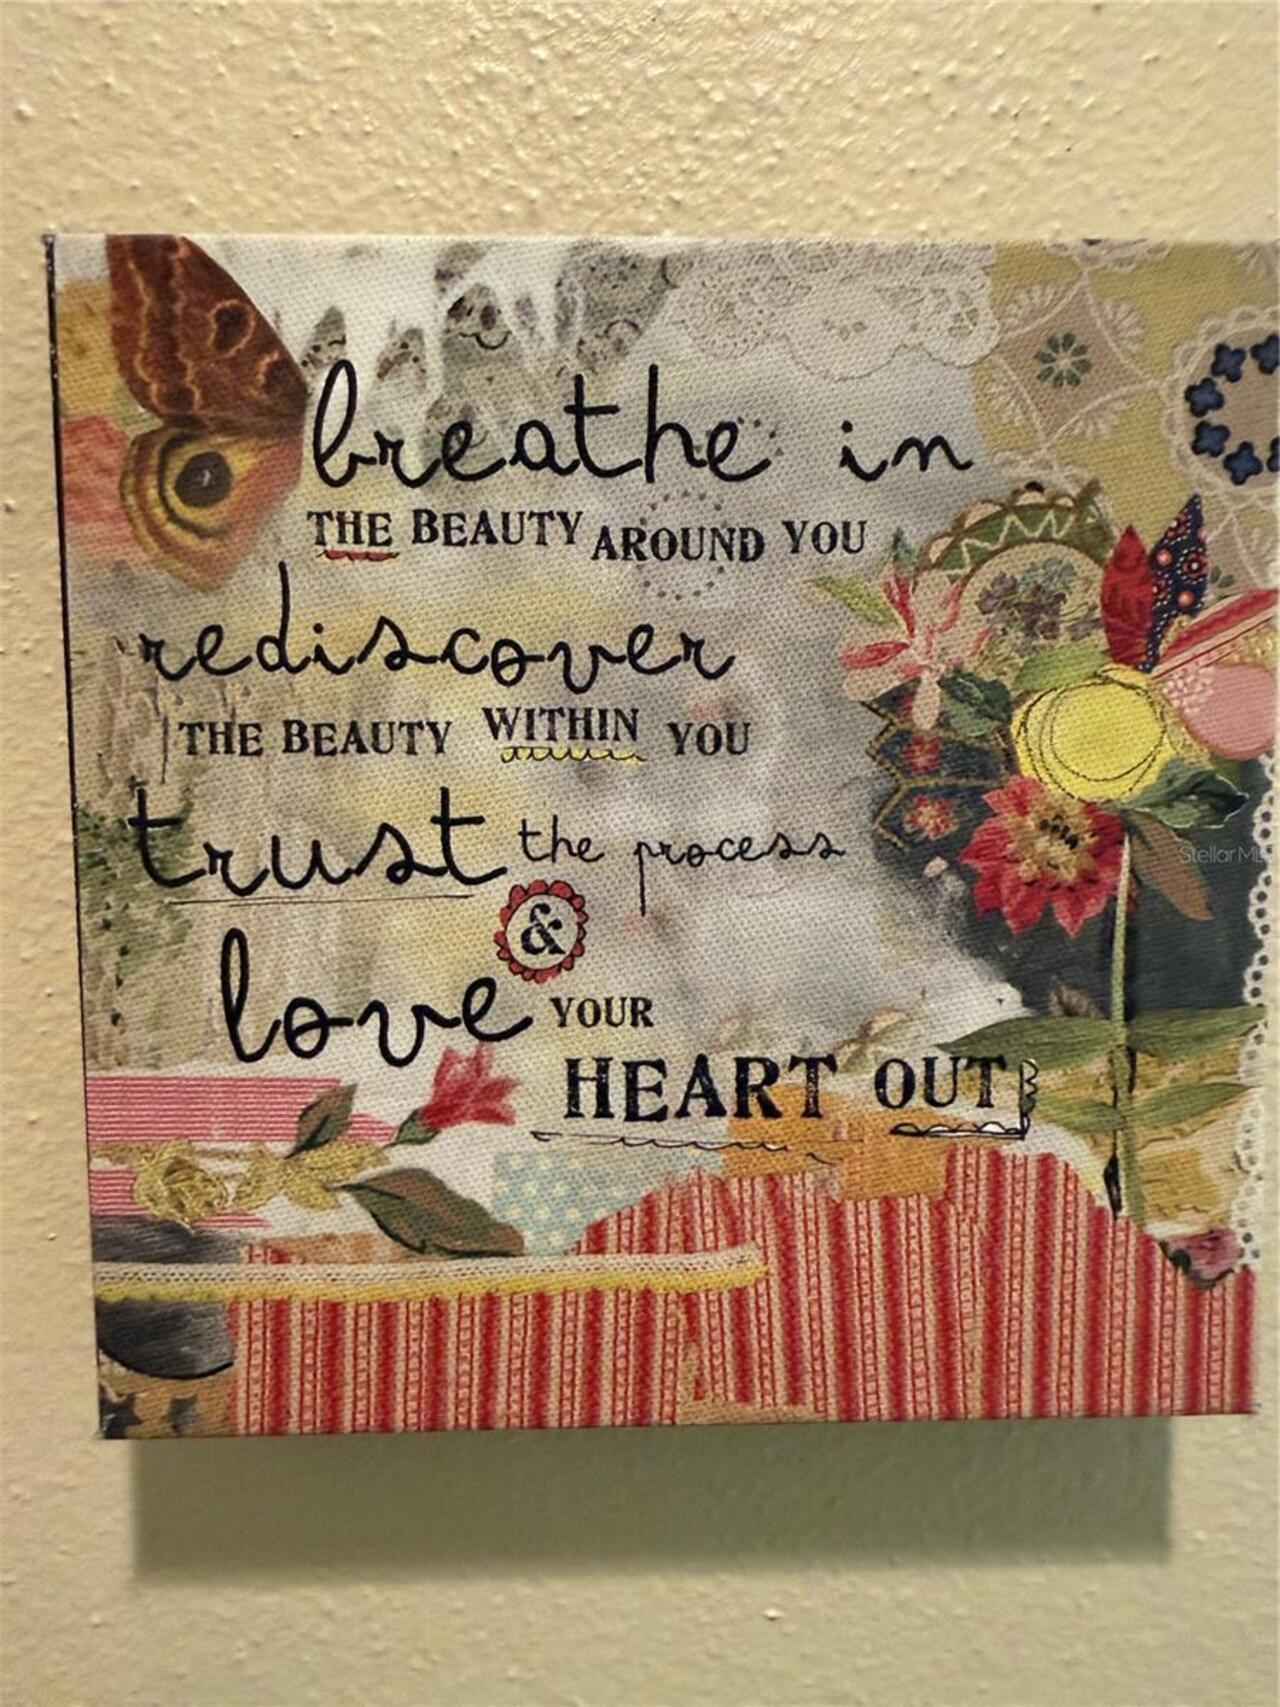 breathe in
THE BEAUTY AROUND YOU
rediscover
THE BEAUTY WITHIN YOU
trust the process
&
love YOUR
HEART OUT
StellarML